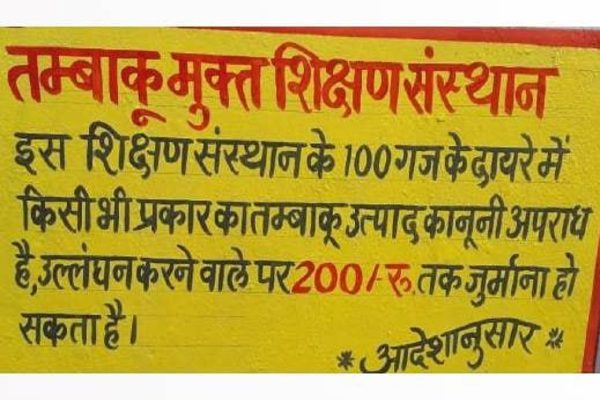 तम्बाकू मुक्त शिक्षण संस्थान
इस शिक्षण संस्थान के 100 गज के दायरे में
किसी भी प्रकार का तम्बाकू उत्पाद कानूनी अपराध
है, उल्लंघन करने वाले पर 200/- रू. तक जुर्माना हो
सकता है।
* आदेशानुसार *